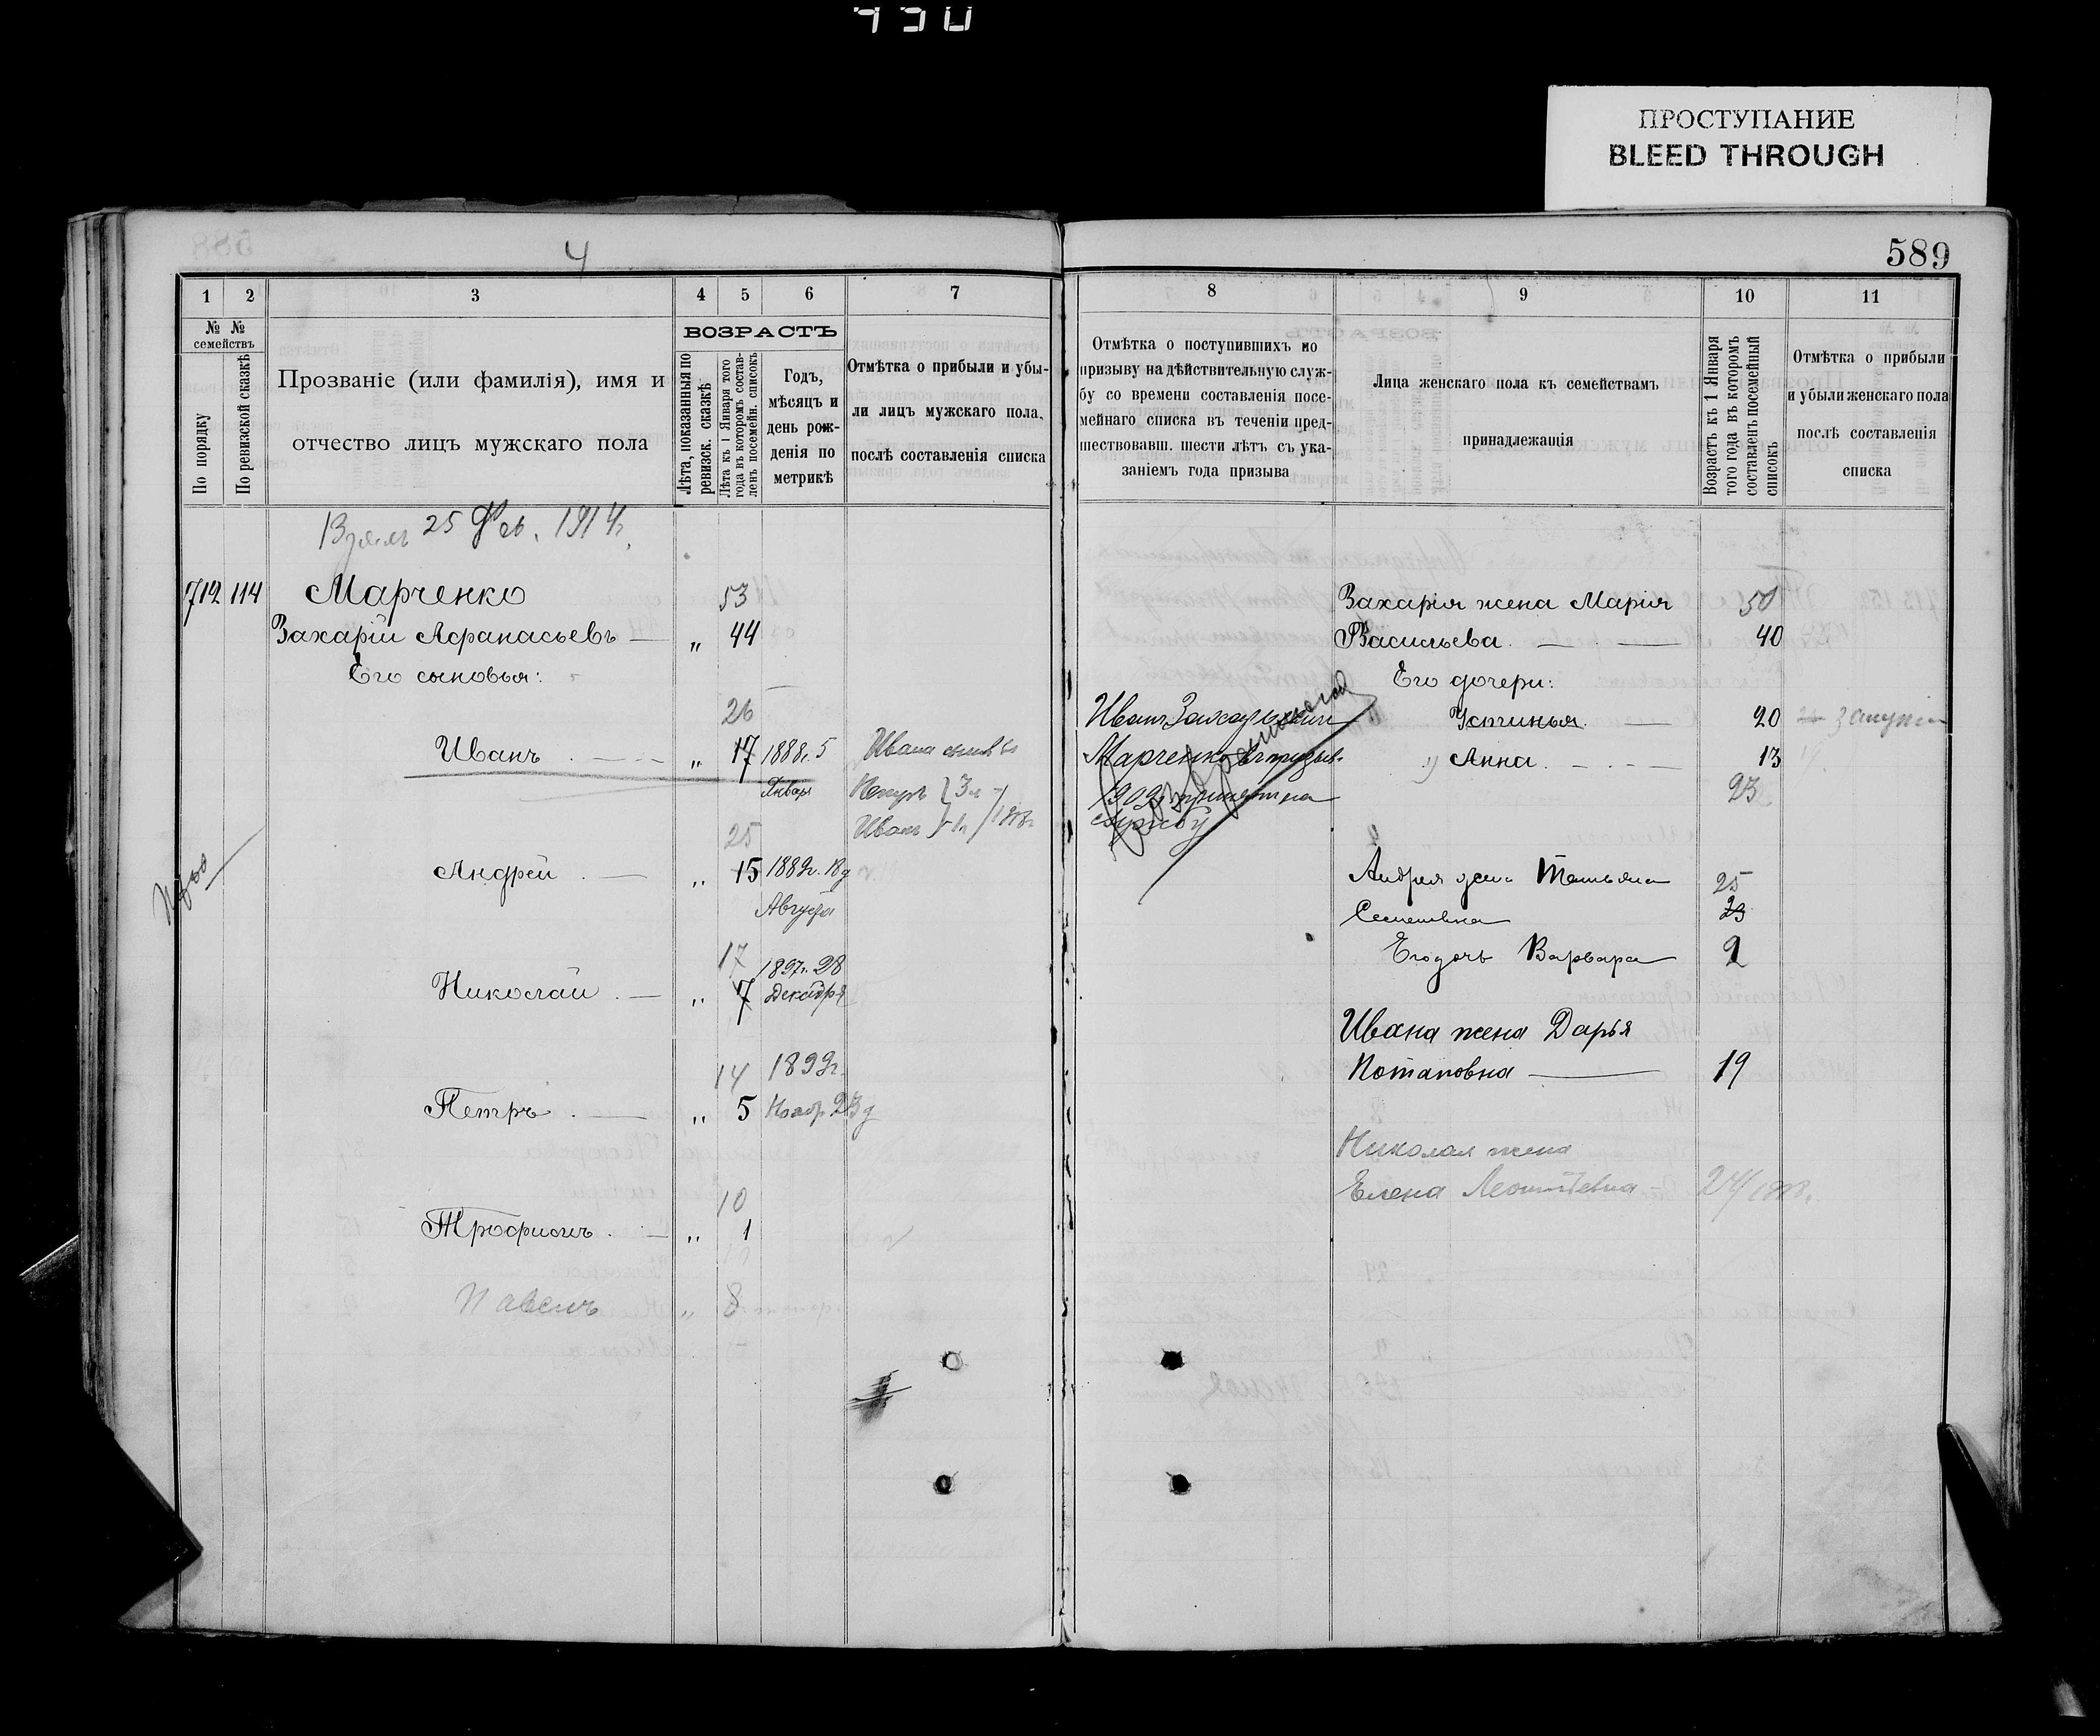 430
ПРОСТУПАНИЕ
BLEED THROUGH
4
589
1
2
3
4
5
6
7
№ № семействъ
По порядку
По ревизской сказкѣ
Прозваніе (или фамилія), имя и
отчество лицъ мужскаго пола
ВОЗРАСТЪ
Лѣта, показанныя по
ревизск. сказкѣ
Лѣта къ 1 Января того
года въ которомъ состав-
ленъ посемейн. списокъ
Годъ,
мѣсяцъ и
день рож-
денія по
метрикѣ
Отмѣтка о прибыли и убы-
ли лицъ мужскаго пола,
послѣ составленія списка
25 Фев. 1914г.
712 114 Марченко 53
Захарій Афанасьевъ — „ 44
Его сыновья:
26
Иванъ — „ 17 1888г. 5
Января
Ивана сыновья
Петръ 3 л
Иванъ 1 г
25
Андрей — „ 15 1889г. 18д
Августа
17
Николай — „ 7 1897г. 28
Декабря
14 1899г.
Петръ — „ 5 Нояб. 23д
10
Трофимъ — „ 1
Павелъ „ 8
8
9
10
11
Отмѣтка о поступившихъ по
призыву на дѣйствительную служ-
бу со времени составленія посе-
мейнаго списка въ теченіи пред-
шествовавш. шести лѣтъ съ ука-
заніемъ года призыва
Лица женскаго пола къ семействамъ
принадлежащія
Возрастъ къ 1 Января
того года въ которомъ
составленъ посемейный
списокъ
Отмѣтка о прибыли
и убыли женскаго пола
послѣ составленія
списка
Захарія жена Марія 50
Васильева — 40
Его дочери:
Иванъ Захарьевич
Устинья — 20 замужем
Марченко въ призыв.
1909 г. принят на
службу
„ Анна — 13
23
Андрея жена Татьяна 25
Семеновна 23
Его дочь Варвара 2
Ивана жена Дарья
Потаповна — 19
Николая жена
Елена Леонтьевна — 24/1918.